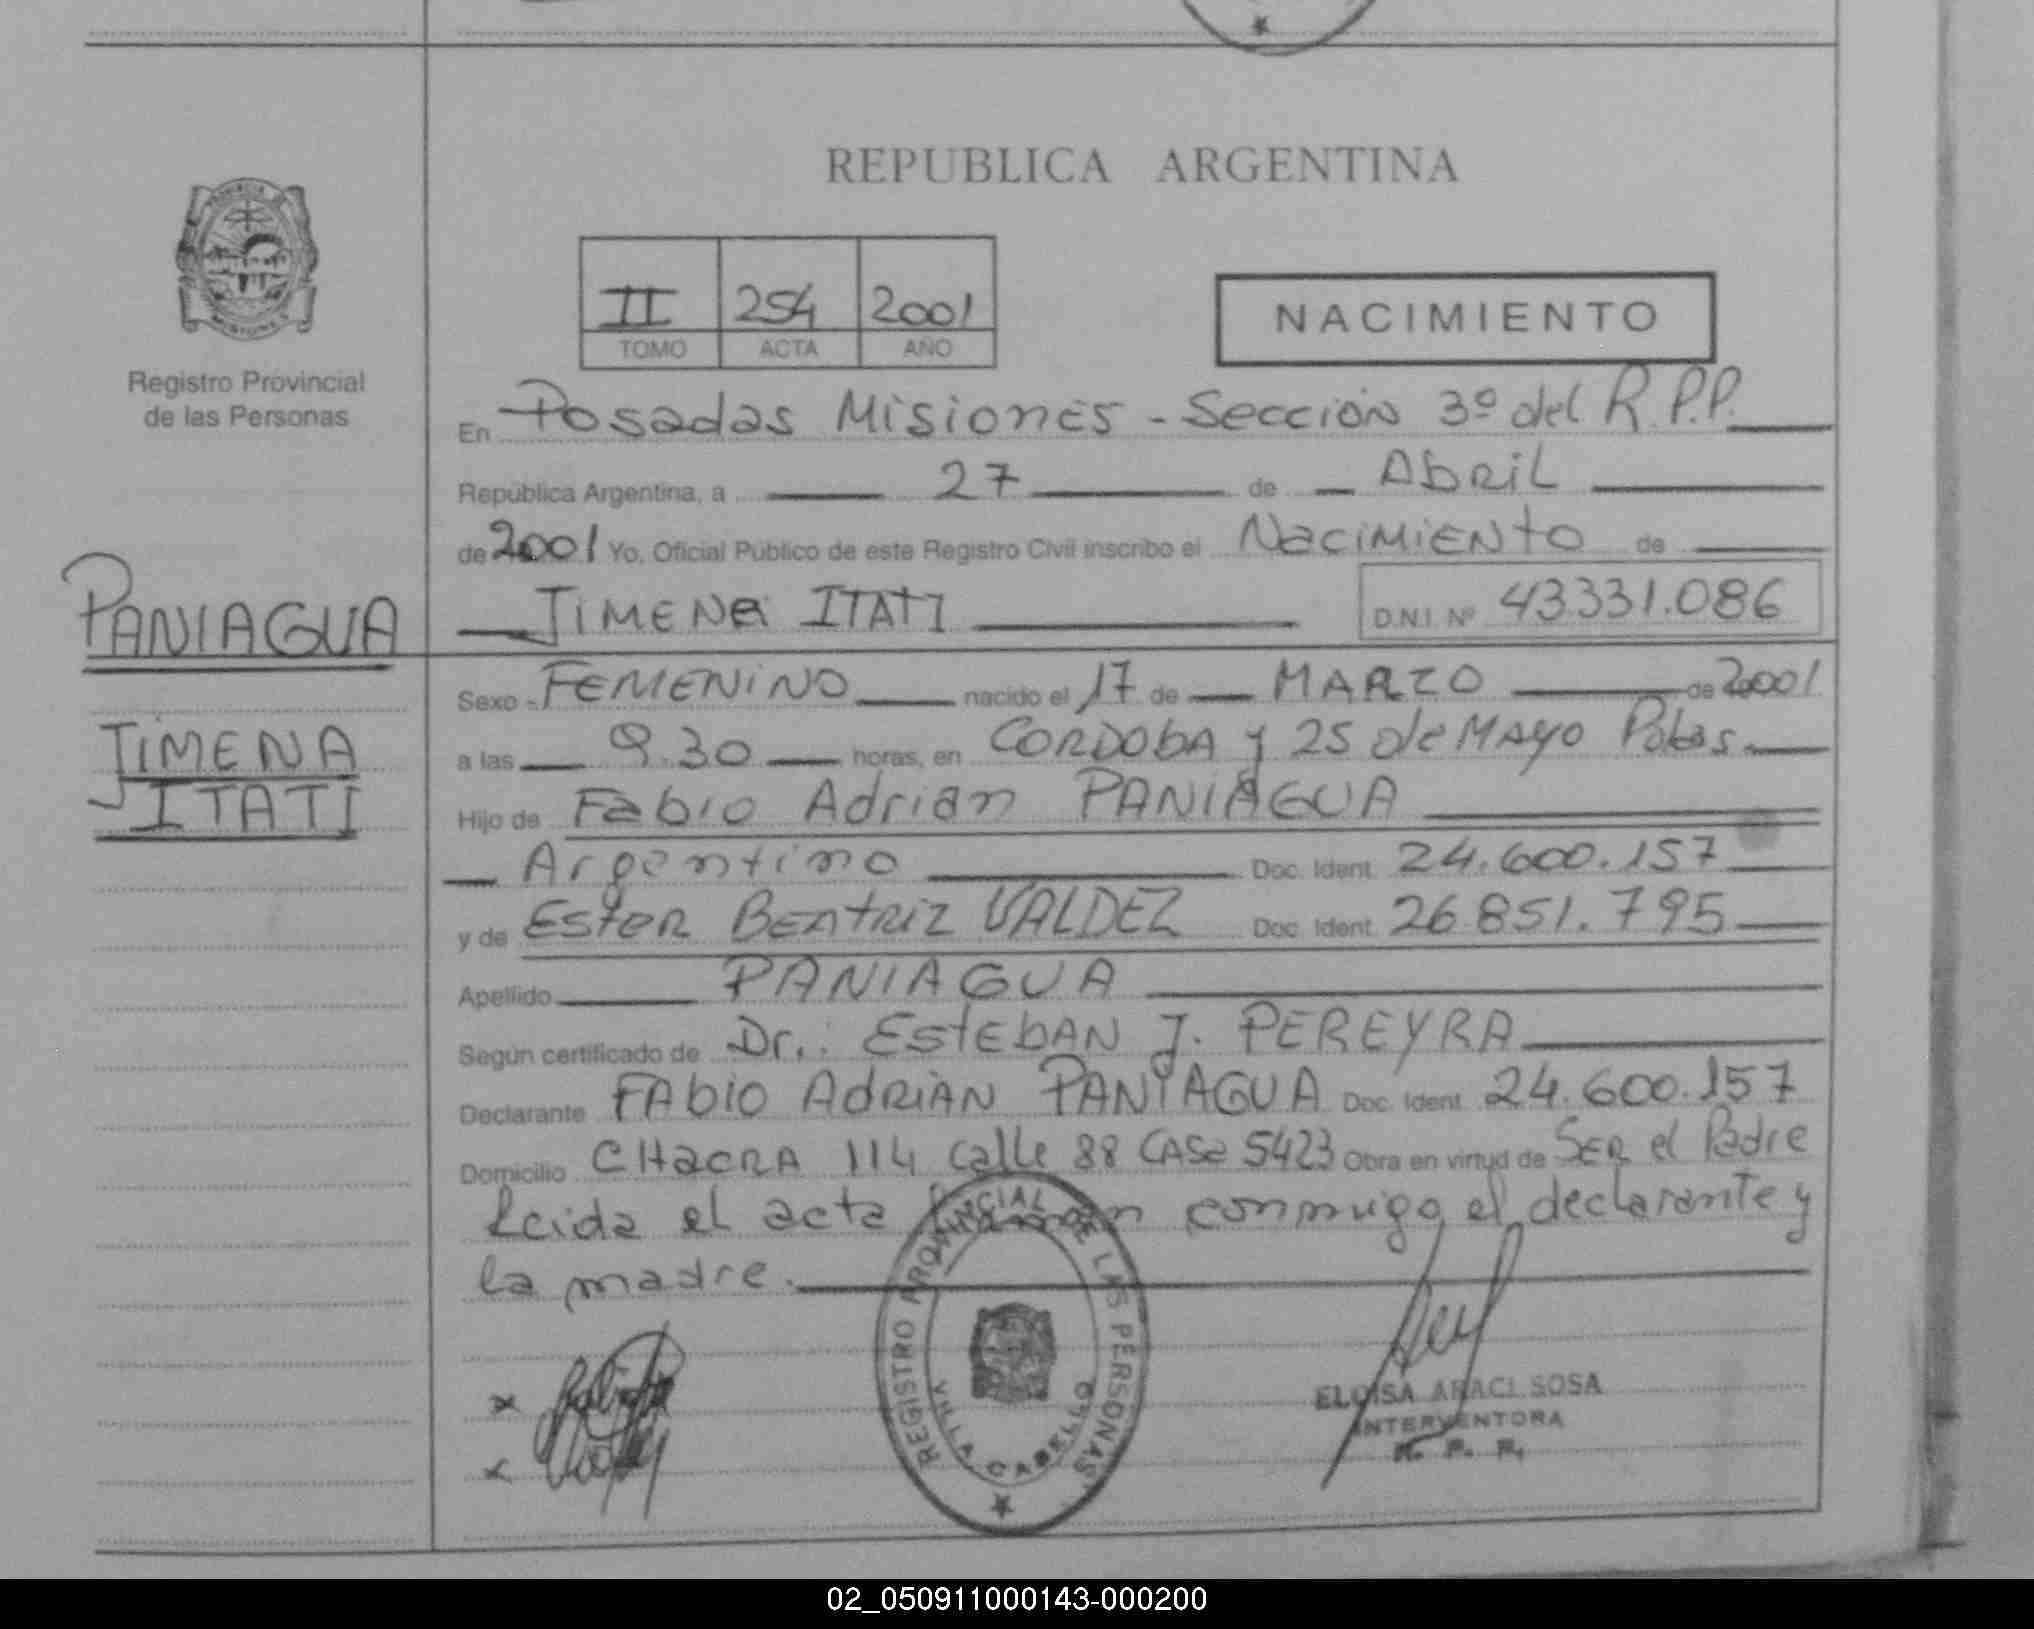 REPUBLICA ARGENTINA
PROVINCIA
MISIONES
Registro Provincial
de las Personas
II 254 2001
TOMO ACTA AÑO
NACIMIENTO
En Posadas Misiones - Sección 3º del R.P.P.
República Argentina, a 27 de Abril
de 2001 Yo, Oficial Público de este Registro Civil inscribo el Nacimiento de
JIMENA ITATI D.N.I. Nº 43331.086
PANIAGUA
JIMENA
ITATI
Sexo FEMENINO nacido el 17 de MARZO de 2001
a las 9.30 horas, en CORDOBA y 25 de MAYO Pdas.
Hijo de Fabio Adrian PANIAGUA
Argentino Doc. Ident. 24.600.157
y de Ester Beatriz VALDEZ Doc. Ident. 26.851.795
Apellido PANIAGUA
Según certificado de Dr.: Esteban J. PEREYRA
Declarante FAbio AdRiAN PANIAGUA Doc. Ident. 24.600.157
Domicilio CHACRA 114 calle 88 CASa 5423 Obra en virtud de SER el Padre
Leida el acta firman conmigo el declarante y
la madre.
REGISTRO PROVINCIAL DE LAS PERSONAS
VILLA CABELLO
ELOISA ARACI SOSA
INTERVENTORA
R. P. P.
02_050911000143-000200